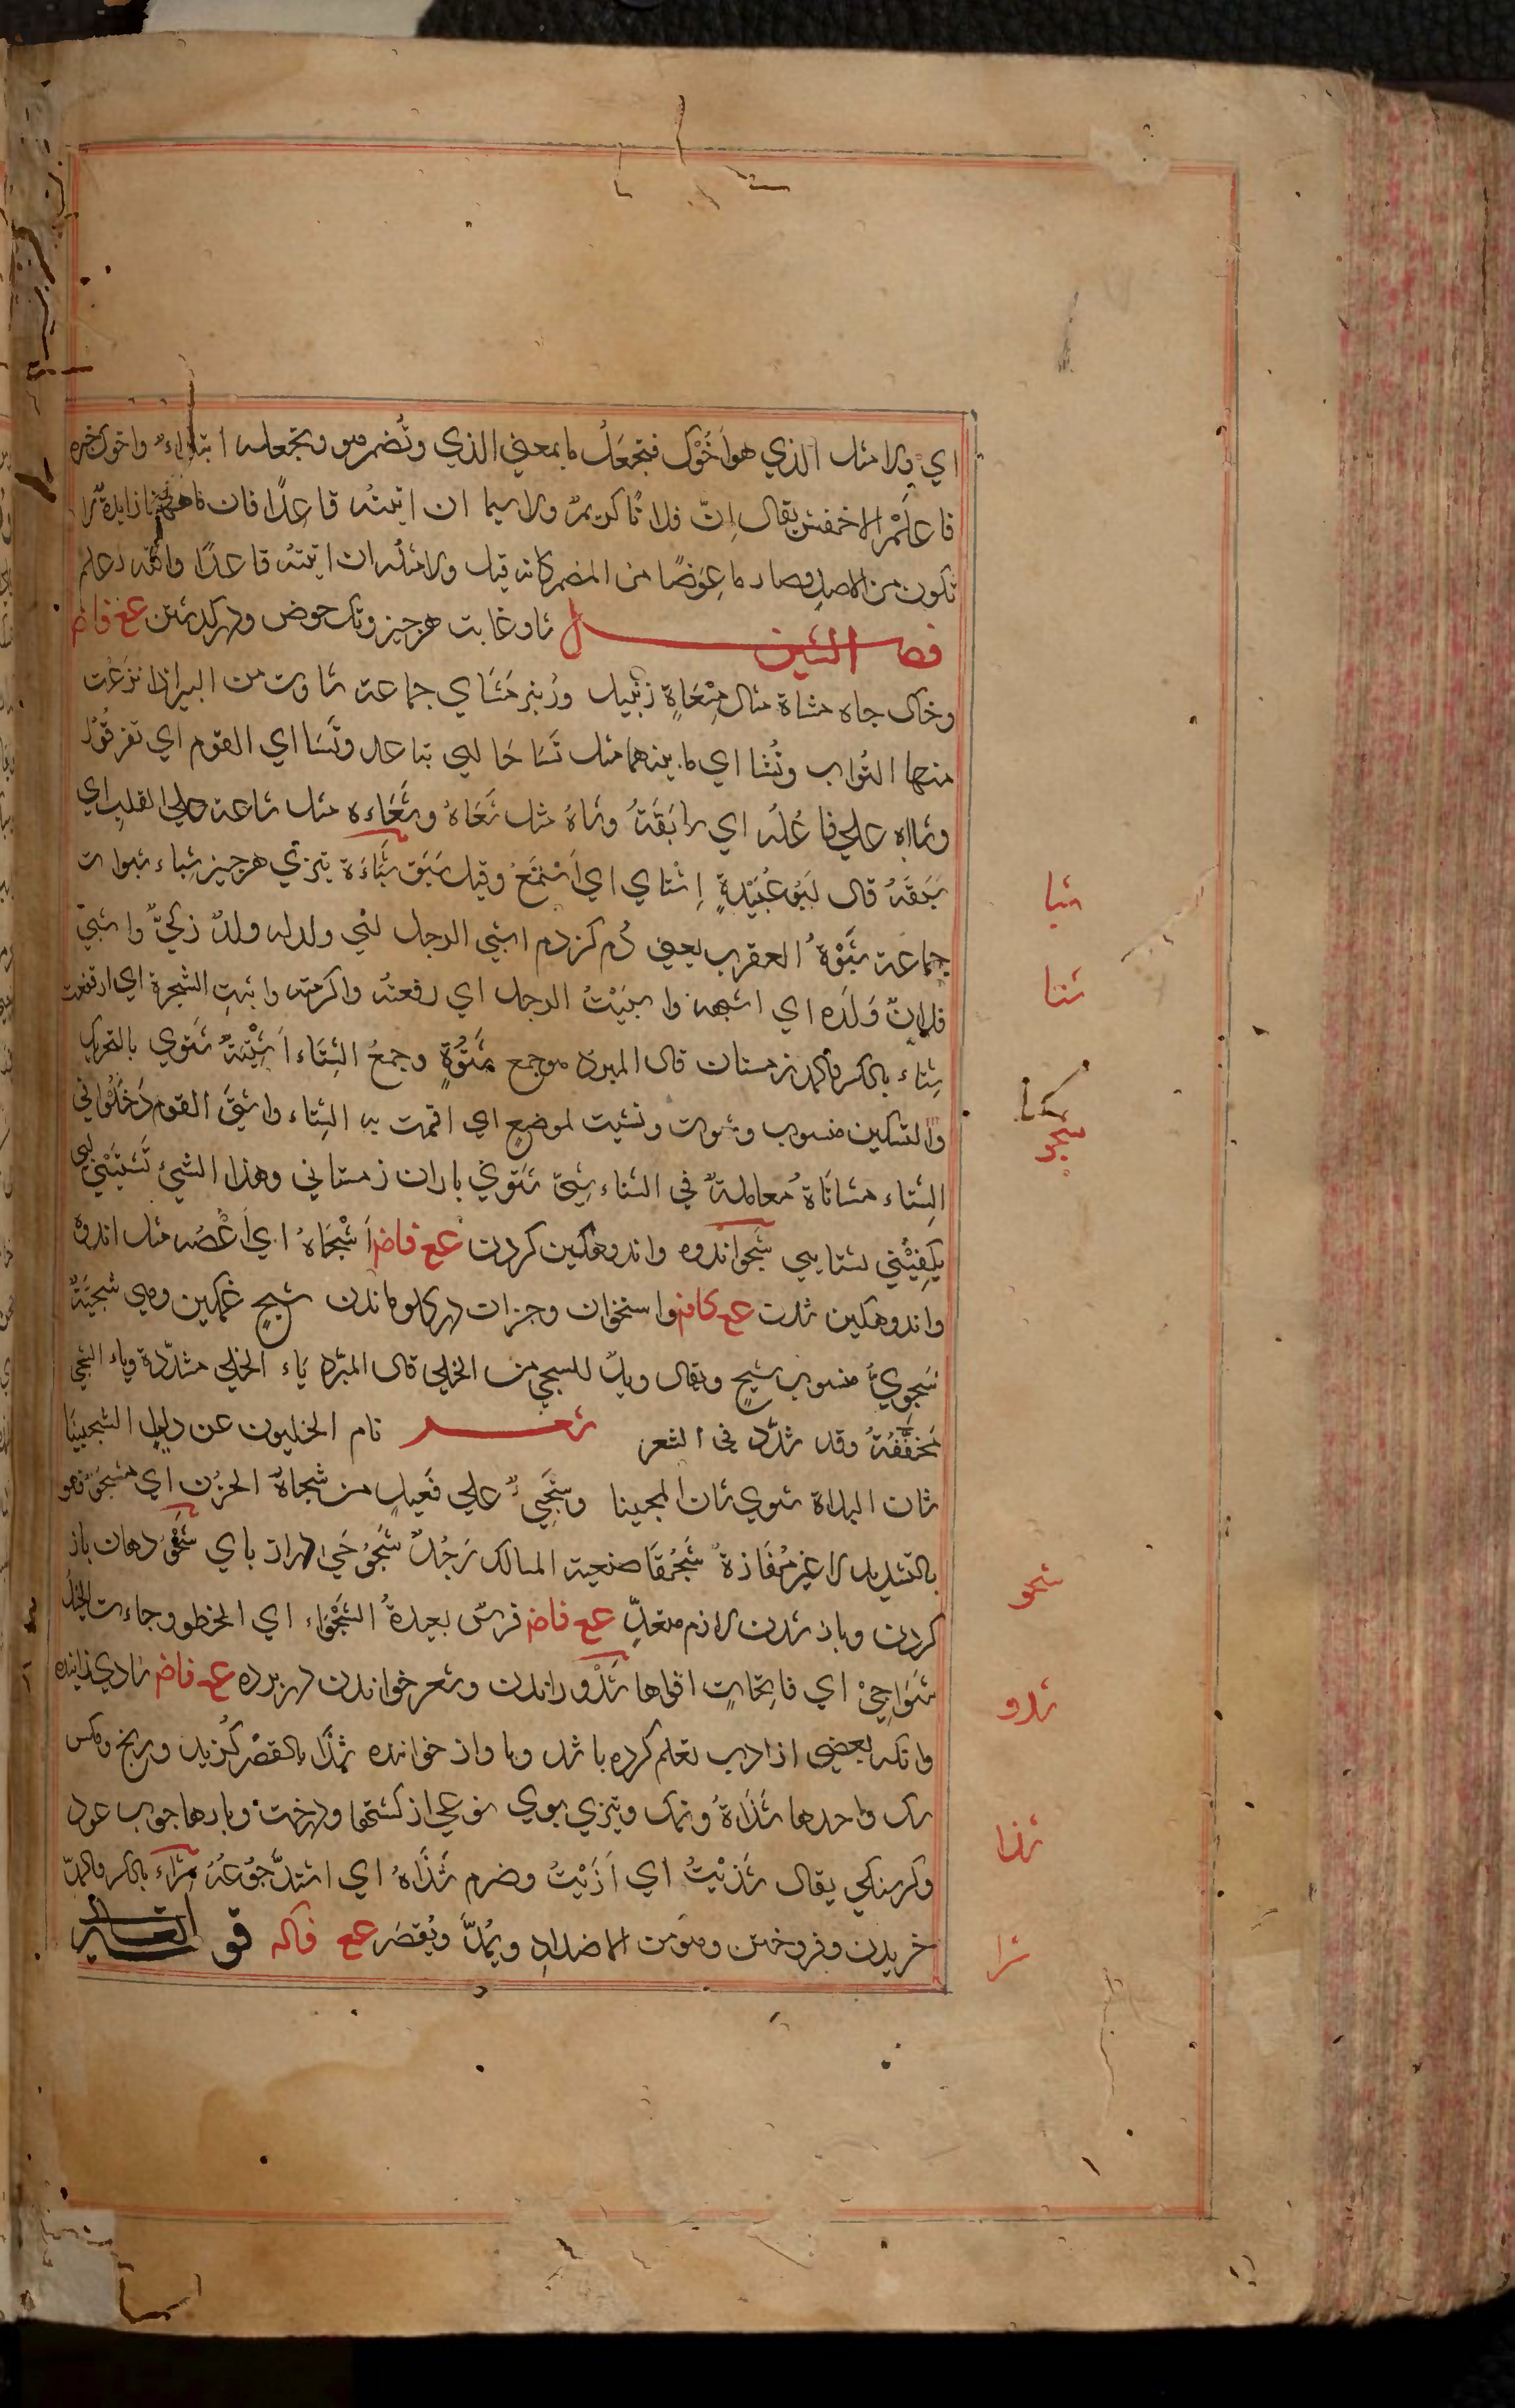 اي ولا مثل الذي هو اَخُوْك فتجعَلُ ما بمعني الذي وتُضمر هو وتجعله ابتداءً واخوك خبره
فاعلم الاخفش يقال اِنّ فلانًا كريمٌ ولا سيما ان اتيتَه قاعِدًا فان ما ههنا زايدة لا
تكون من الاصل وصار ما عِوَضًا من المضمر كانه قيل ولا مثلُه ان اتيتَه قاعدًا واللّه اعلم
فصل الشين شاو غايت هر چيز وتك حوض وبر كدشتن عع فاض
وخاك چاه مشاة مثال مِشْعَاةٍ زنْبيل وزنبر مَشَاي جماعة شاوت من البير اذا نزَعْت
منها التُراب وتُشا اي ما بينهما مثل تَشَاعَا اي تباعد وتَشَااي القوم اي تفرقُوْا
وشااه علي فاعُلَه اي سابَقَهُ وشاهُ مثل شَعَاهُ وشَعَاءه مثل شاعه علي القلب اي
سَبَقَهُ قال ابو عُبَيْدةٍ اِشتاي اي اَسْتَمَعَ وقيل سَبَق شَبَاءَة تيزي هر چيز شباء شبوات
جماعة شَبْوَةُ العقرب يعني دُم كزدم اشبي الرجل اي ولد له ولدٌ زكيٌّ واشبي
فلانٌ وَلَدَه اي اشبهه واشبَيْتُ الرجل اي رفعتُه واكرمته واشبت الشجرة اي ارتفعت
شِتاء بالكسر والمد زمستان قال المبرد هو جمع شَتْوَةٍ وجمعُ الشِتَاء اَشْتِيَةٌ شَتوي بالتحريك
والتسكين منسوب وشتوت وتشتيت لموضع اي اقمت به الشتاء واشتي القوم دَخَلُوا في
الشِتاء مشاتَاةٌ مُعاملةٌ في الشتاء شِتي شَتوي باران زمستاني وهذا الشيُ تُشتّيْني اي
يكفِيْنِي لشتايي شَجو اندوه واندوهكين كردن عع فاض اَشْجَاهُ اي اَغْصَه مثل اندوه
واندوهكين شدن عع كاف واستخوان وجزان در كلو ماندن شجٍ غمكين وهي شجيَةٌ
شَجويٌ منسوب شجٍ ويقال ويلٌ للشجي من الخلي قال المبرّد ياء الخلي مشدّدة وياء الشجي
مُخَفَّفَةُ وقد شدّد في الشعر شعر نام الخليون عن ليل الشجيينا
شان السلاة سوي شان المحبينا وشَجِيٌّ علي فَعيلٍ من شجاهُ الحزن اي مشجوٌّ فهو
بالتشديد لا غير مُفَازةٌ شَجْوَا صعبة المسالك رَجُلٌ شَجَوْجَي دراز باي شَحْوٌ دهان باز
كردن وباز شدن لازم متعدٍّ عع فاض فرسٌ بعيدةُ الشَحْوَاء اي الخطو وجاءت الخيلُ
شَوَاحِيَ اي فاتِحَاتٍ افواها شَدْو راندن وشعر خواندن در پرده عع فاض شادي خواننده
وانكه بعضي از ادب تعلم كرده باشد وبا واز خواننده شَذَا بالقصْر كُزيد ورنج ومكس
سك واحدها شَذَاةٌ ونمك وتيزي بوي نوعي از كشتيها ودرخت وبارها چوب عود
وكرسنكي يقال شذيْتُ اي اَذَيْتُ وضرم شَذَاهُ اي اشتدَّ جُوْعُهُ شِراء بالكسر والمدّ
خريدن وفروختن وهو من الاضدادِ ويُمدُّ ويُقصَر عع فاكه قو
شبا
شتا
شجو
شحو
شدو
شذا
شرا